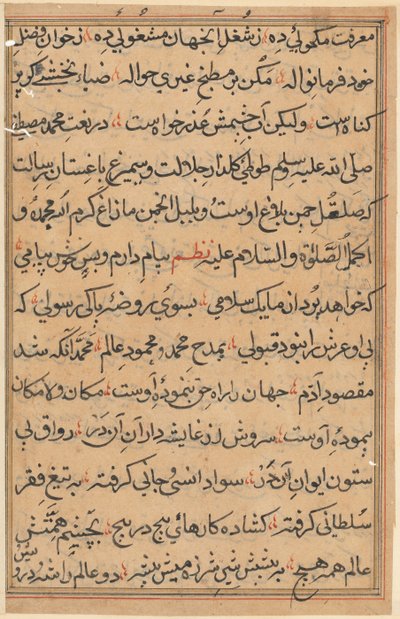 معرفت مکمولی ده ز شغل اینجهان مشغولی ده ز خوان فضل
خود فرما نواله مکن بر مطبخ غیری حواله ضیاء نخشبی گر پر
کناه است ولیکن آب چشمش عذر خواه است در نعت محمد مصطفی
صلی الله علیه وسلم طوطی گلذار جلالت و سیمرغ باغستان رسالت
که صلصل چمن بلغ اوست و بلبل انجمن ما زاغ کرم الله محمده و
اکمل الصلوة والسلام علیه نظم پیام دارم و بس خوش پیامی
که خواهد بردان ما یک سلامی بسوی روضهٔ پاکی رسولی که
بی او عرش را نبود قبولی بمدح محمد و محمود عالم محمد آنکه شد
مقصود آدم جهان را راه حق بنموده اوست مکان و لامکان
پیموده اوست سروش از غایشه داران آن در رواق بی
ستون ایوان آن در سواد انس و جانی کرفته به تیغ فقر
سلطانی کرفته کشاده کارهای پیچ در پیچ بچشم همتش
عالم همه هیچ به پیشش شیر شرزه میش بیشه دو عالم را شده درویش